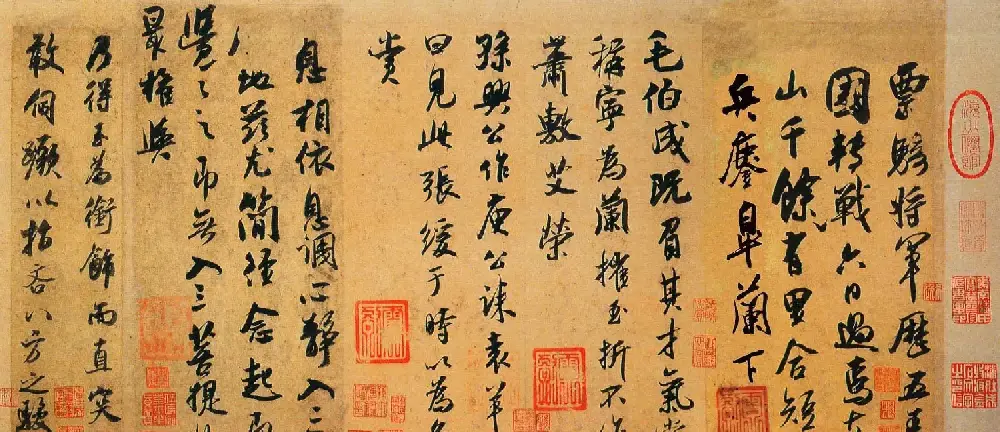 票騎將軍歷五王
國轉戰六日過焉
山千餘有里合短
兵鏖皋蘭下
毛伯成既負其才氣常
稱寧為蘭摧玉折不作
蕭敷艾榮
孫興公作庾公誄袁羊
曰見此張緩于時以為名
賞
息相依息調心靜入
地茲尤簡徑念起即
覺覺之即無入三菩提
最權輿
乃得不為銜飾而直突
敢伺蹶以指吝八方之駿